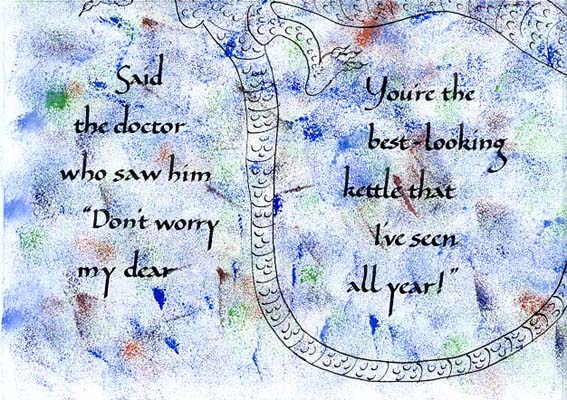 Said
the doctor
who saw him
"Don't worry
my dear
You're the
best-looking
kettle that
I've seen
all year!"